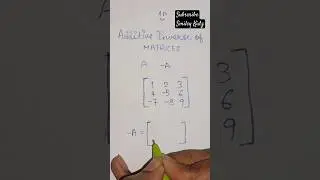 Subscribe
Smiley Kidz
Additive Inverse of
MATRICES
A -A
1 2 3
4 -5 6
-7 -8 9
-A =
3
6
9